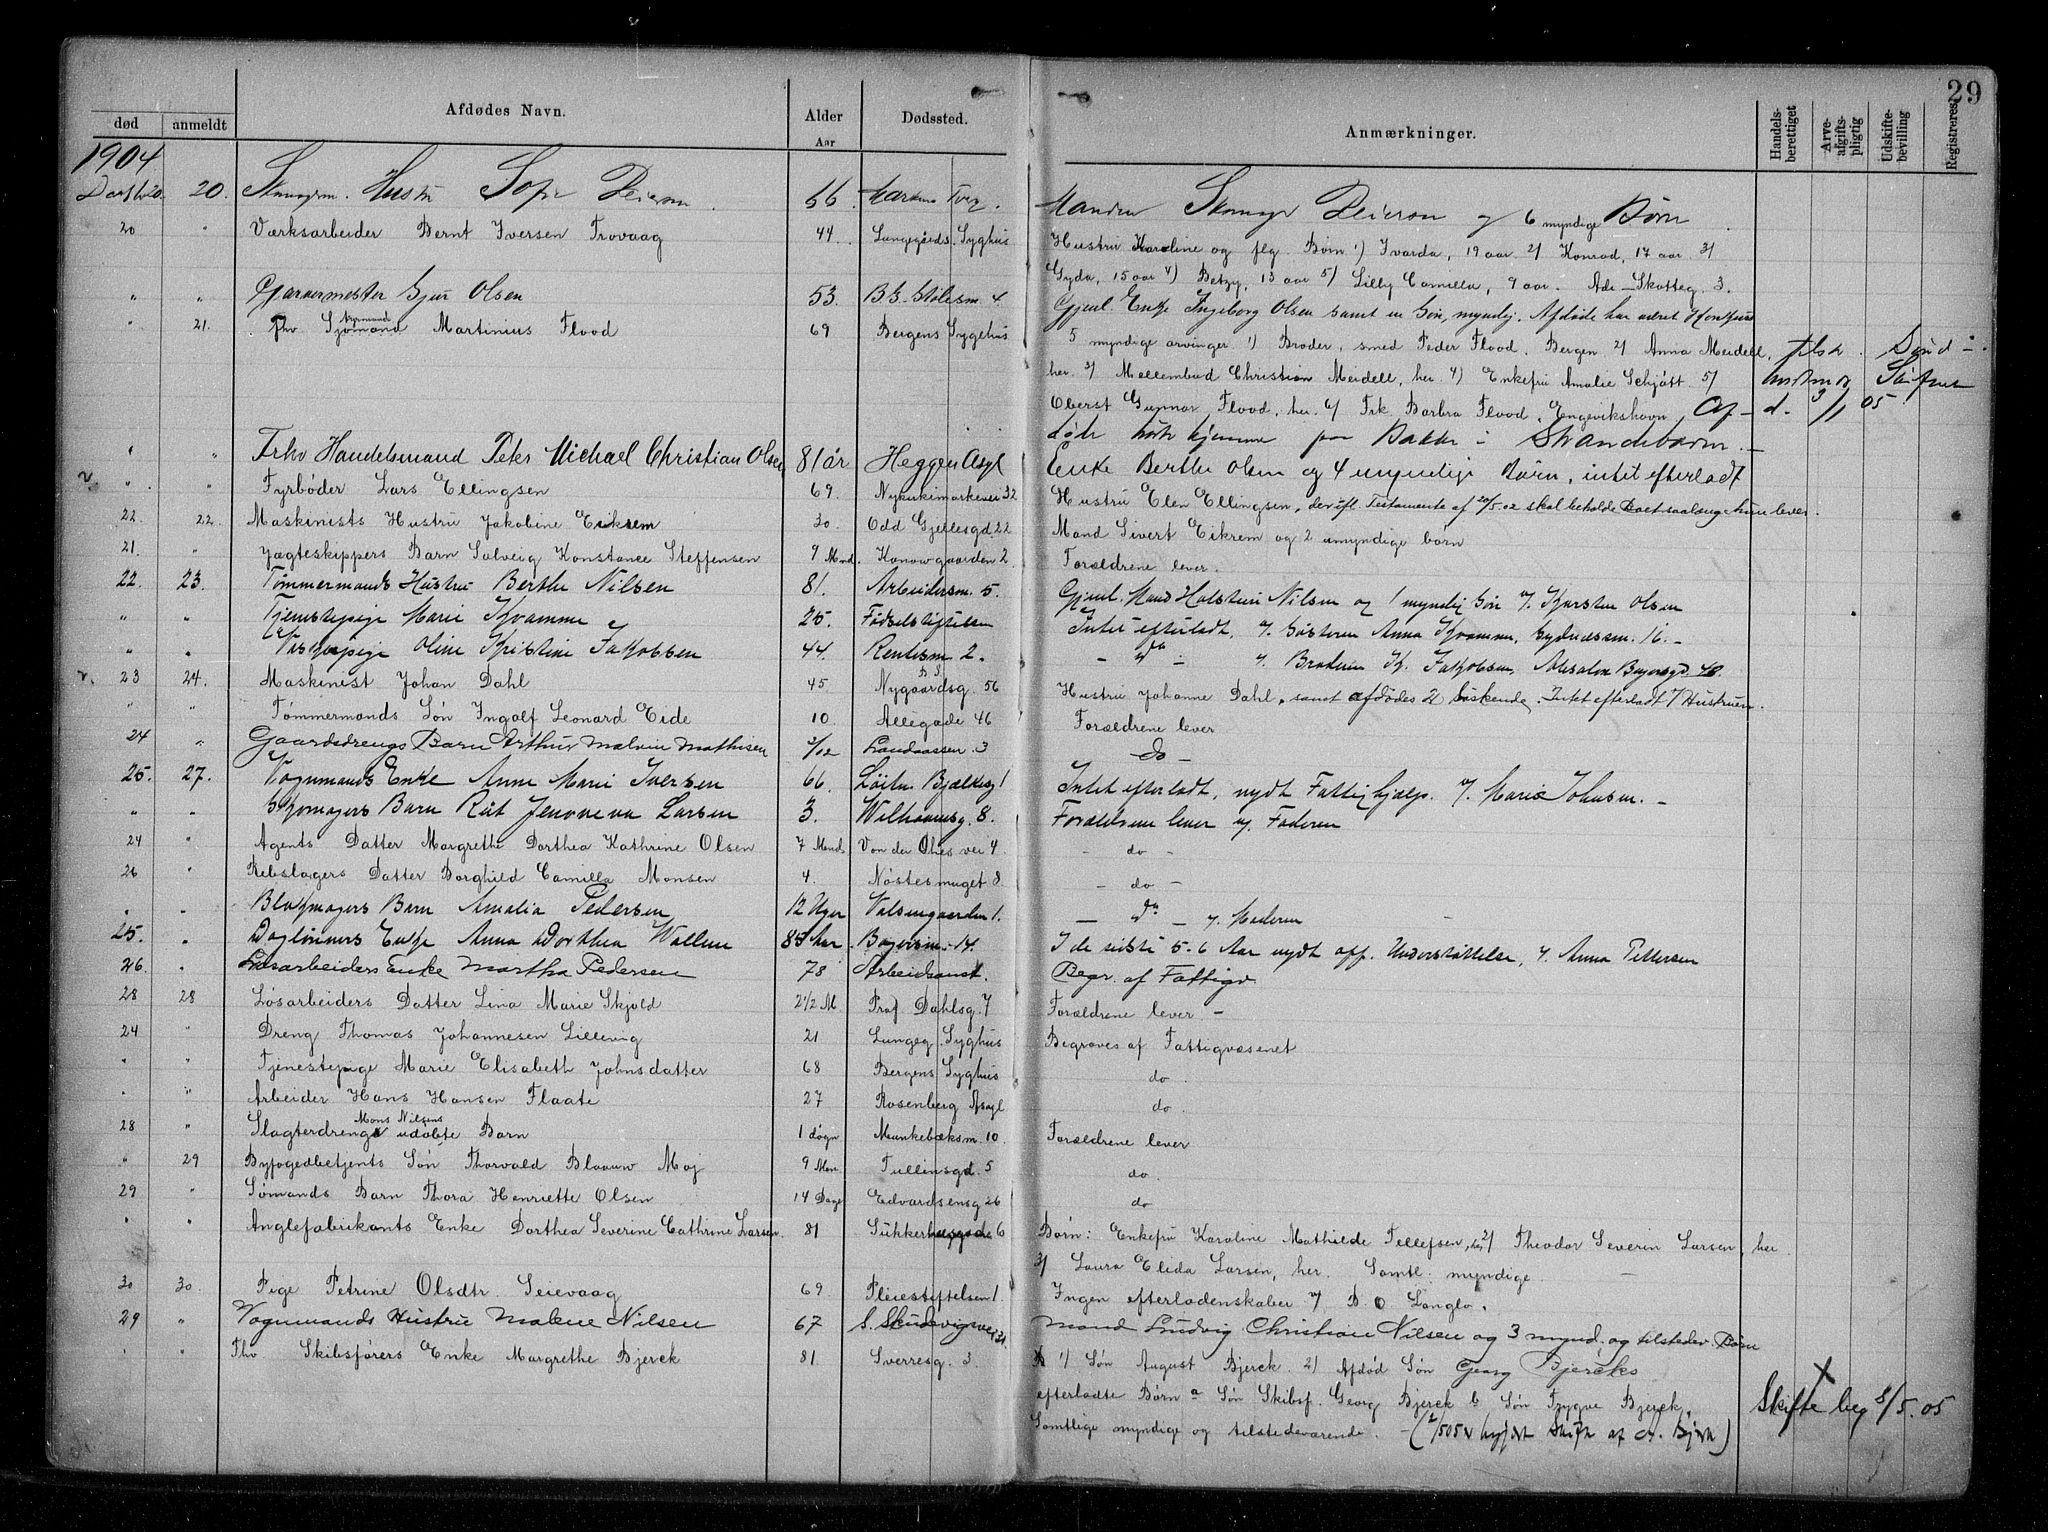 29
død anmeldt Afdødes Navn. Alder Aar Dødssted. Anmærkninger. Handels-berettiget Arve-afgifts-pligtig Udskifte-bevilling Registreres
1904
20. Hustru Sofie 66. Manden og 6 myndige Børn
20 " Værksarbeider Bernt Iversen Trovaag 44. Lungegaards Syghus Hustru Karoline og flg. Børn 1) Ivarda, 19 aar 2) Konrad, 17 aar 3)
Gyda, 15 aar 4) Betzy, 13 aar 5) Lilly Camilla, 9 aar. Adr. Skotteg. 3.
" " Garvermester Gjert Olsen 53. 4 Gjenl. Enke Ingeborg Olsen samt en Søn, myndig. Afdøde har været
" 21. Fhv Sjømand Martinius Flood 69 Bergens Sygehus 5 myndige arvinger 1) Broder, smed Peder Flood, Bergen 2) Anna Meidell,
her 3) Mellembud Christian Meidell, her 4) Enkefru Amalie Schjøtt 5)
Oberst Gunnar Flood, her 6) Frk. Barbra Flood, Engevikshavn, Af- d. 3/1 05
døde hørte hjemme paa Bakke i Strandebarm.
" " Fhv Handelsmand Peter Michael Christian Olsen 81 år Heggen Asyl Enke Berthe Olsen og 4 umyndige Børn, intet efterladt
" " Fyrbøder Lars Ellingsen 69. Nykirkimarkevei 32 Hustru Elen Ellingsen, der ifl. Testamente af 20/5.02 skal beholde Boet saalænge hun lever.
22. 22. Maskinists Hustru Jakobine Eikrem 30. Odd Gjellesgd. 22 Mand Sivert Eikrem og 2 umyndige børn
21. " Jægteskippers Barn Solveig Konstance Steffensen 9 Mnd. Kanowgaarden 2. Forældrene lever.
22. 23. Tømmermands Hustru Berthe Nilsen 81. Arbeidersm. 5. Gjenl. Mand Halstein Nilsen og 1 myndig Søn v. Karsten Olsen
" " Tjenstepige Marie Kvamme 25. Fødselstiftelsen Intet efterladt, v. Søsteren Anna Kvamme, Sydnessm. 16.
" " Oline Kristine Jakobsen 44. Rentesm 2. - do - v. Broderen K. Jakobsen, Absalon Beyersgd 48.
23 24. Maskinist Johan Dahl 45. Nygaardsg. 56 Hustru Johanne Dahl, samt afdødes 2 Søskende. Intet efterladt v Hustruen.
" " Tømmermands Søn Ingolf Leonard Eide 10 Allégade 46 Forældrene lever
24 " Gaardsdrengs Barn Arthur Malvin Mathisen 3/12 Landaassen. 3 do -
25. 27. Vognmands Enke Anne Marie Iversen 66. Løitn. Bjælkesg 1 Intet efterladt, nydt Fattighjælp. v. Marie Johnsen. -
" " Skomagers Barn Rut Jenoveva Larsen 3. Welhavensg. 8. Forældrene lever v. Faderen
24 " Agents Datter Margrethe Dorthea Kathrine Olsen 7 Mnd Von der Ohes vei 4. - do -
26 " Rebslagers Datter Borghild Camilla Monsen 4. Nøstesmuget 8. - do -
" " Blokmagers Barn Amalia Pedersen 12 Uger Valsengaarden 1. - do - v. Moderen
25. " Dagløinners Enke Anna Dorthea Wallem 85 Aar 14. I de sidste 5-6 Aar nydt off. Understøttelse, v. Anna Pettersen
26. " Løsarbeiders Enke Martha Pedersen 78 Arbeidsanst. Begr. af Fattigv.
28 28 Løsarbeiders Datter Lina Marie Skjold 2 1/2 M Prof Dahlsg. 7 Forældrene lever -
24 " Dreng Thomas Johannesen Lillevig 21 Lungeg. Syghus Begraves af Fattigvæsenet
" " Tjenestepige Marie Elisabeth Johnsdatter 68 Bergens Syghus do.
" " Arbeider Hans Hansen Flaate 27 Rosenberg Asyl do.
28 " Slagterdreng Mons Nilsens udøbte Barn 1 døgn Munkebæksm. 10 Forældrene lever
" 29 Byfogedbetjents Søn Thorvald Blaauw Moj 9 Mnd. Tullinsgd. 5 do.
29 " Sømands Barn Thora Henriette Olsen 14 Dage Edvardsensg 26 do
" " Anglefabrikants Enke Dorthea Severine Cathrine Larsen. 81 Sukkerhusgade 6 Børn: Enkefru Karoline Mathilde Tellefsen, her, 2) Theodor Severin Larsen, her
3) Laura Elida Larsen, her. Samtl. myndige.
30 30 Pige Petrine Olsdtr. Seievaag 69 Pleiestiftelsen 1. Ingen efterladenskaber v. B. O Langlo.
29 " Vognmands Hustru Malene Nilsen 67 S. Skudevigsvei 31 Mand Ludvig Christian Nilsen og 3 mynd. og tilstedev. Børn
" " Fhv Skibsførers Enke Margrethe Bjerck 81 Sverresg. 3. B 1) Søn August Bjerck. 2) Afdød Søn Georg Bjercks
efterladte Børn a Søn Skibsf. Georg Bjerck b Søn Trygve Bjerck. Skifte beg 8/5. 05
Samtlige myndige og tilstedeværende. af A. Bjerk)